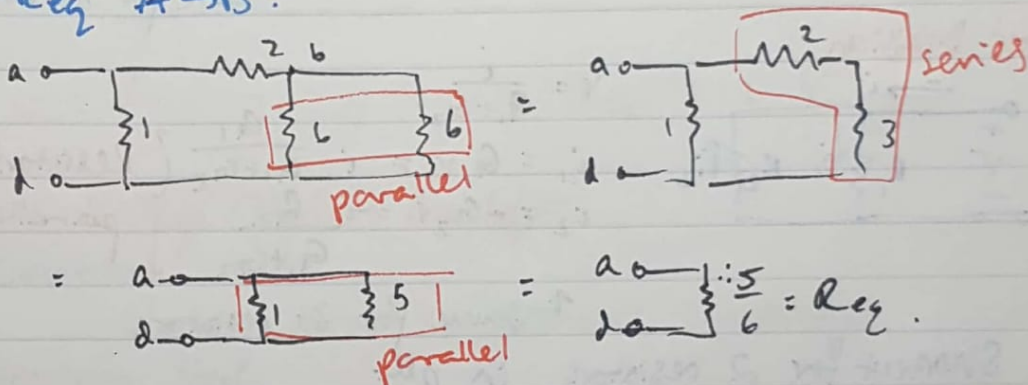 Req
a 2 6 1 6 6 d
parallel
=
a 2 1 3 d
series
=
a 1 5 d
parallel
=
a d ∴ 5/6 = Req.